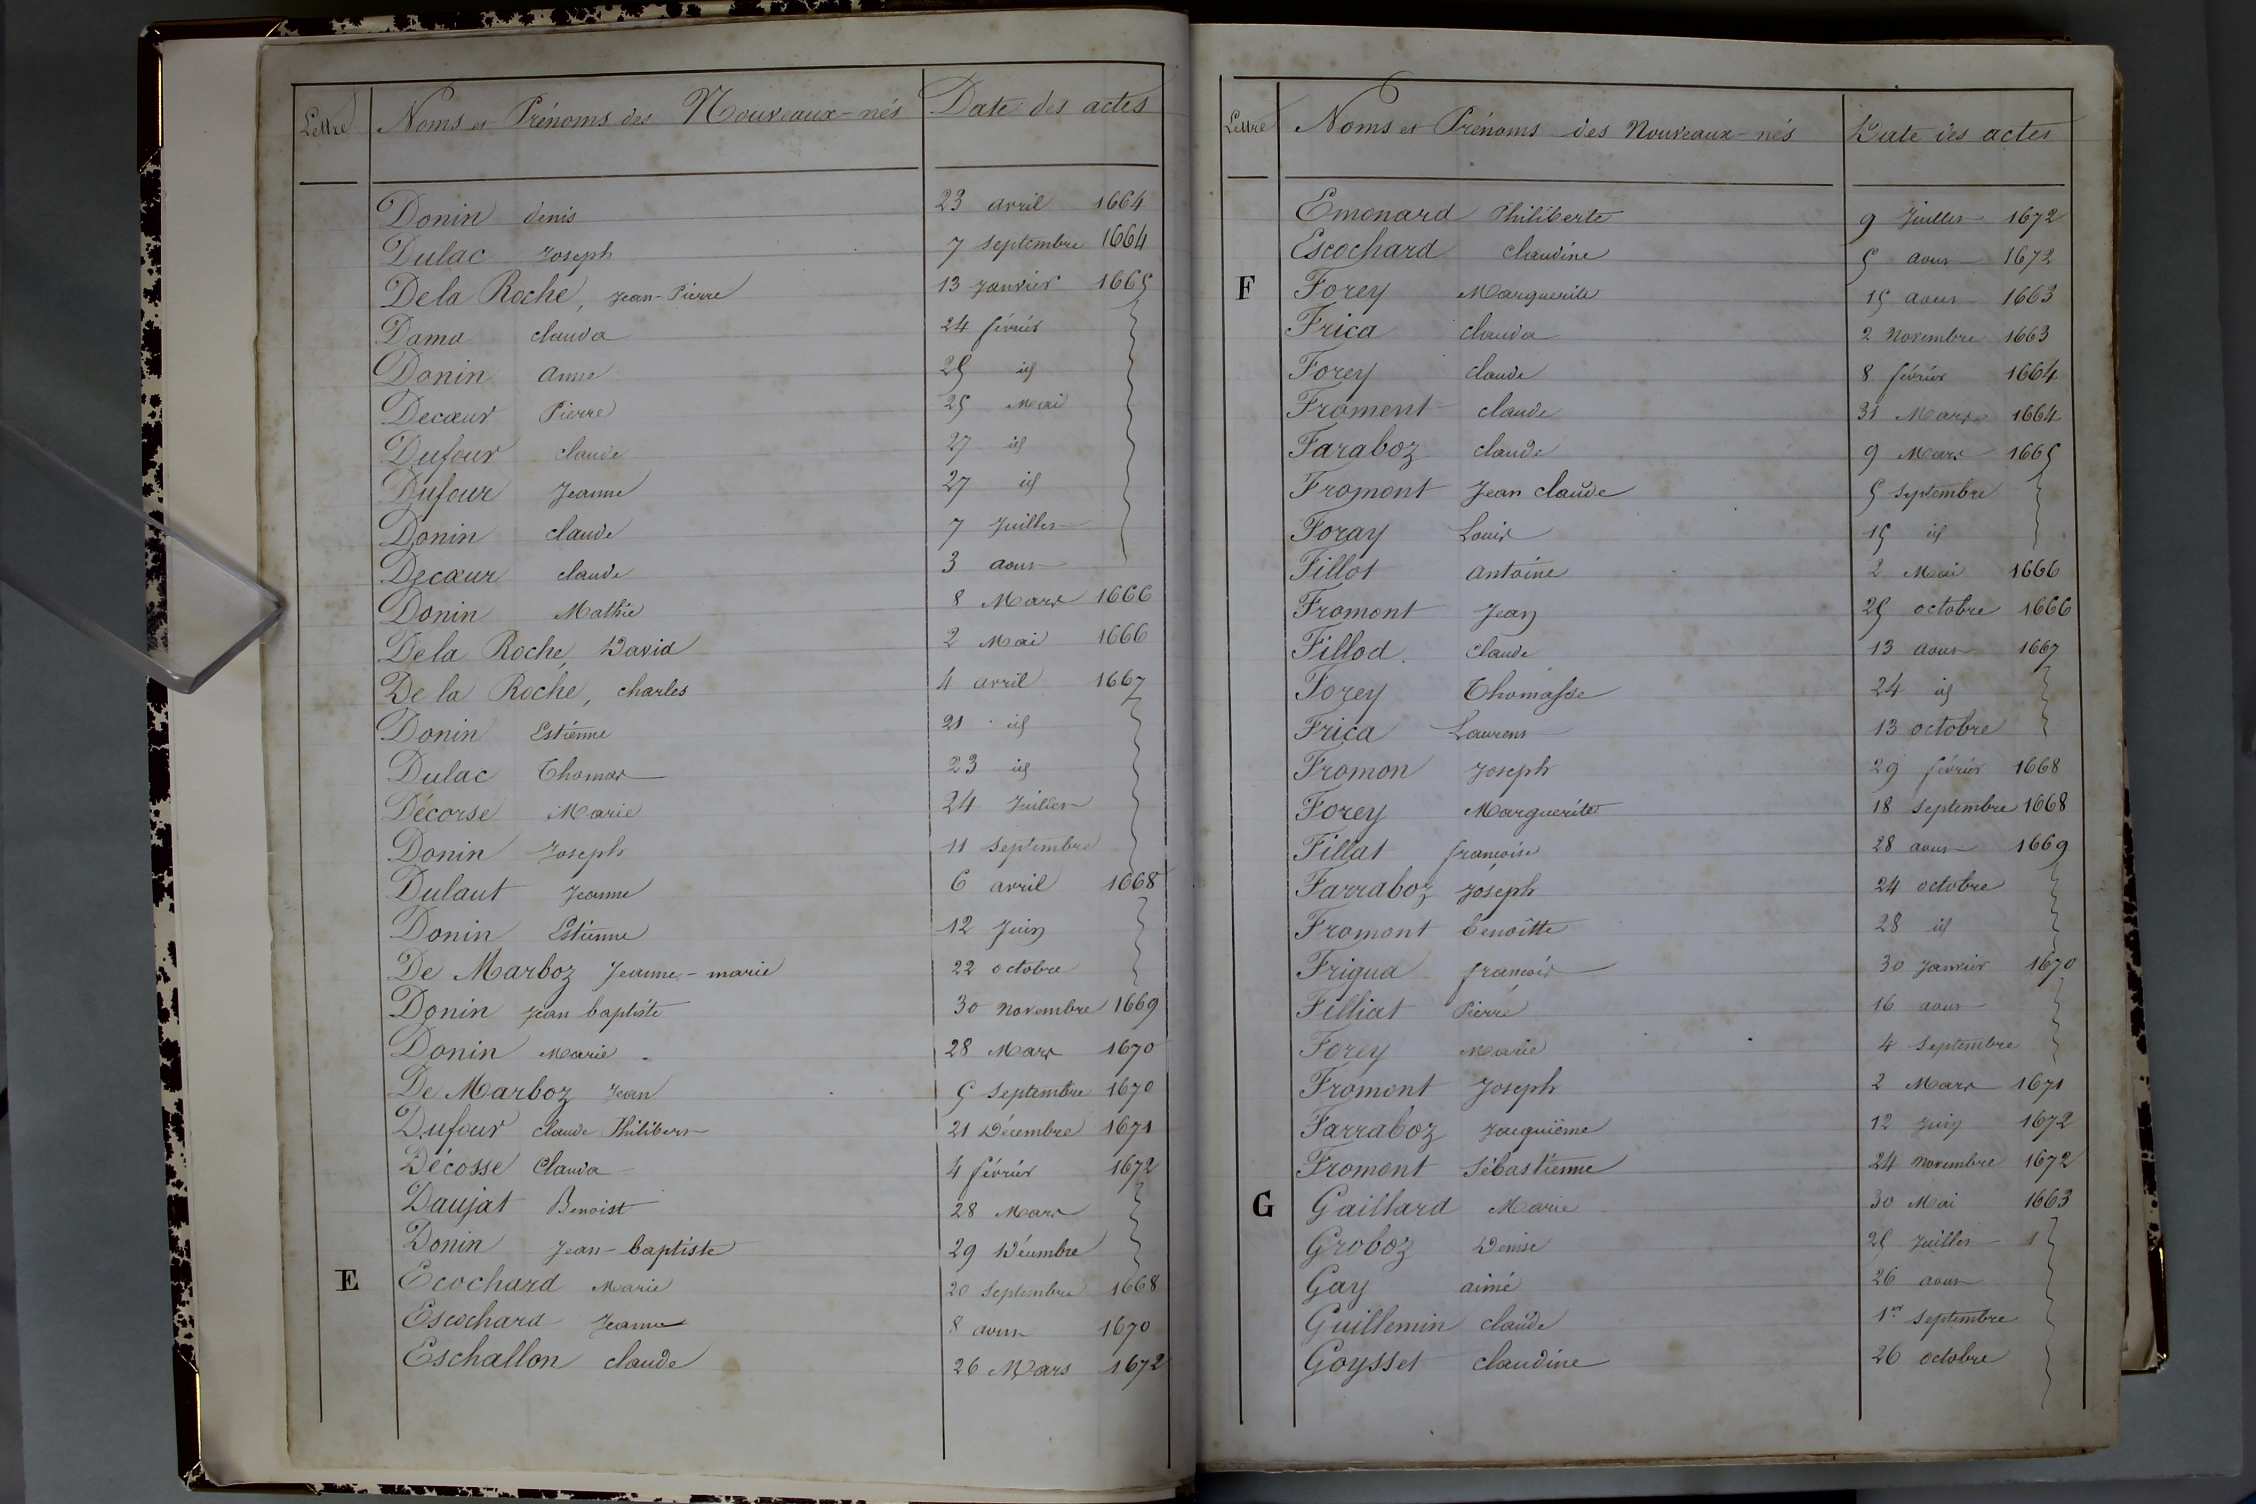 Lettre Noms et Prénoms des Nouveaux-nés Date des actes
Donin denis 23 avril 1664
Dulac Joseph 7 septembre 1664
De la Roche, Jean-Pierre 13 Janvier 1665
Dama clauda 24 février
Donin anne 25 id
Decœur Pierre 25 Mai
Dufour claude 27 id
Dufour Jeanne 27 id
Donin claude 7 Juillet
Decœur claude 3 aout
Donin Mathie 8 Mars 1666
De la Roche, David 2 Mai 1666
De la Roche, charles 4 avril 1667
Donin Estienne 21 id
Dulac Thomas 23 id
Décorse Marie 24 Juillet
Donin Joseph 11 septembre
Dulaut Jeanne 6 avril 1668
Donin Estienne 12 Juin
De Marboz Jeanne-marie 22 octobre
Donin Jean baptiste 30 novembre 1669
Donin Marie 28 Mars 1670
De Marboz Jean 5 septembre 1670
Dufour claude Philibert 21 Décembre 1671
Décosse Clauda 4 février 1672
Daujat Benoist 28 Mars
Donin Jean-baptiste 29 Décembre
E Ecochard Marie 20 septembre 1668
Escochard Jeanne 8 aout 1670
Eschallon claude 26 Mars 1672
Lettre Noms et Prénoms des Nouveaux-nés Date des actes
Emonard Philiberte 9 Juillet 1672
Escochard claudine 5 aout 1672
F Forey Marguerite 15 aout 1663
Frica clauda 2 Novembre 1663
Forey claude 8 février 1664
Froment claude 31 Mars 1664
Faraboz claude 9 Mars 1665
Fromont Jean claude 5 septembre
Foray Louis 15 id
Fillot antoine 2 Mai 1666
Fromont Jean 25 octobre 1666
Fillod claude 13 aout 1667
Forey Thomasse 24 id
Frica Laurens 13 octobre
Fromon Joseph 29 février 1668
Forey Marguerite 18 septembre 1668
Fillat françoise 28 aout 1669
Farraboz Joseph 24 octobre
Fromont benoitte 28 id
Frigua françois 30 Janvier 1670
Filliat Pierre 16 aout
Forey Marie 4 septembre
Fromont Joseph 2 Mars 1671
Farraboz Jacquième 12 Juin 1672
Fromont sébastienne 24 novembre 1672
G Gaillard Marie 30 Mai 1663
Groboz Denise 25 Juillet 1
Gay aimé 26 aout
Guillemin claude 1er septembre
Goysset claudine 26 octobre